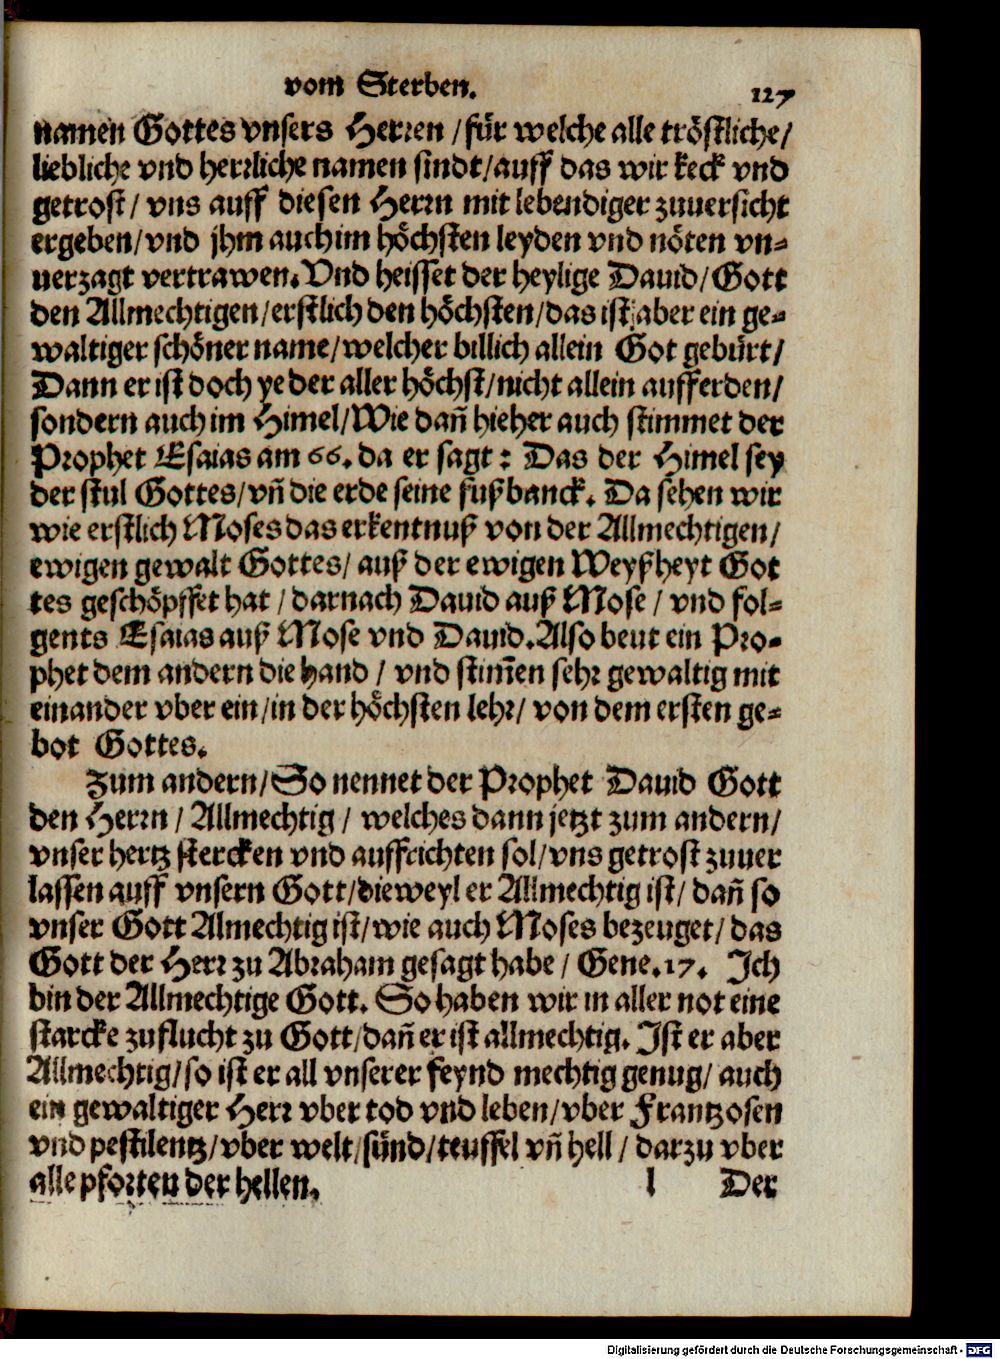 vom Sterben.
127
namen Gottes vnsers Herren /für welche alle tröstliche/
liebliche vnd herrliche namen sindt/auff das wir keck vnd
getrost/ vns auff diesen Herrn mit lebendiger zuuersicht
ergeben/vnd jhm auch im höchsten leyden vnd nöten vn-
uerzagt vertrawen. Vnd heisset der heylige Dauid/Gott
den Allmechtigen/erstlich den höchsten/das ist aber ein ge-
waltiger schöner name/welcher billich allein Got gebürt/
Dann er ist doch ye der aller höchst/nicht allein aufferden/
sondern auch im Himel/Wie dañ hieher auch stimmet der
Prophet Esaias am 66. da er sagt: Das der Himel sey
der stul Gottes/vñ die erde seine fußbanck. Da sehen wir
wie erstlich Moses das erkentnuß von der Allmechtigen/
ewigen gewalt Gottes/ auß der ewigen Weyßheyt Got
tes geschöpffet hat / darnach Dauid auß Mose / vnd fol-
gents Esaias auß Mose vnd Dauid. Also beut ein Pro-
phet dem andern die hand / vnd stim̃en sehr gewaltig mit
einander vber ein/in der höchsten lehr/ von dem ersten ge-
bot Gottes.
Zum andern/So nennet der Prophet Dauid Gott
den Herrn / Allmechtig / welches dann jetzt zum andern/
vnser hertz stercken vnd auffrichten sol/vns getrost zuuer
lassen auff vnsern Gott/dieweyl er Allmechtig ist/ dañ so
vnser Gott Almechtig ist/wie auch Moses bezeuget/ das
Gott der Herr zu Abraham gesagt habe / Gene. 17. Ich
bin der Allmechtige Gott. So haben wir in aller not eine
starcke zuflucht zu Gott/dañ er ist allmechtig. Ist er aber
Allmechtig/so ist er all vnserer feynd mechtig genug/ auch
ein gewaltiger Herr vber tod vnd leben/vber Frantzosen
vnd pestilentz/vber welt/sünd/teuffel vñ hell / darzu vber
alle pforten der hellen.
l Der
Digitalisierung gefördert durch die Deutsche Forschungsgemeinschaft - DFG